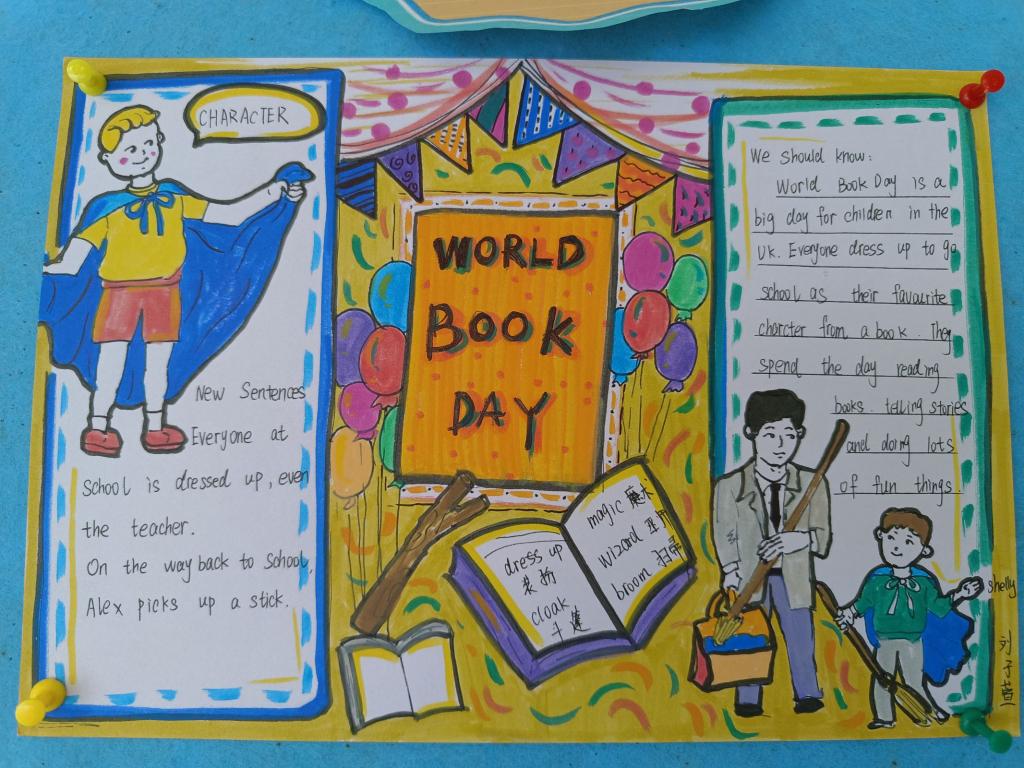 CHARACTER
New Sentences
Everyone at
School is dressed up, even
the teacher.
On the way back to School,
Alex picks up a stick.
WORLD
BOOK
DAY
dress up
装扮
cloak
斗篷
magic 魔术
wizard 巫师
broom 扫帚
We should know:
World Book Day is a
big day for children in the
UK. Everyone dress up to go
school as their favourite
charcter from a book. They
spend the day reading
books. telling stories
and doing lots
of fun things.
shelly
刘子萱